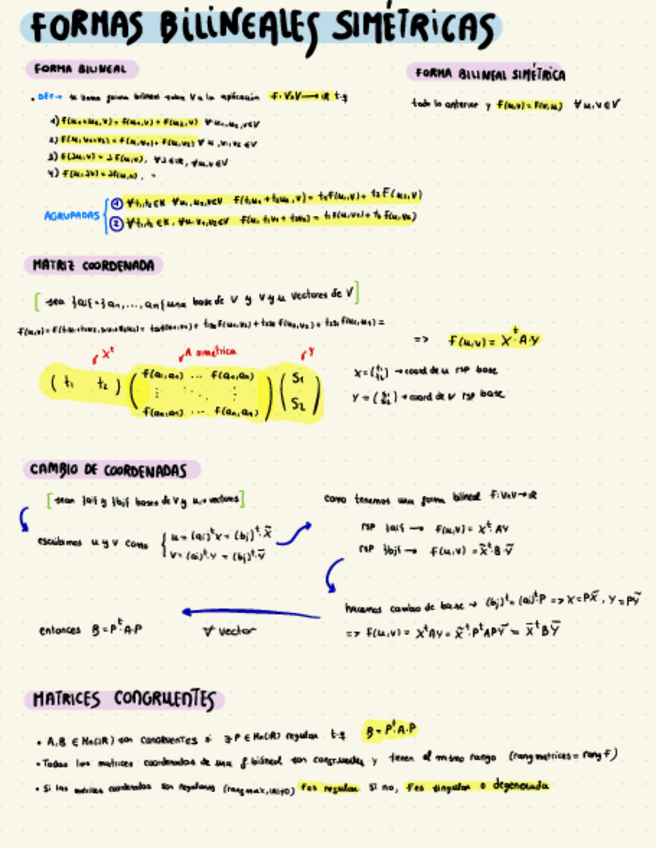 FORMAS BILINEALES SIMÉTRICAS
FORMA BILINEAL
• DEF→ se llama forma bilineal sobre V a la aplicación f: VxV→R t.q
1) f(u₁+u₂,v) = f(u₁,v) + f(u₂,v) ∀u₁,u₂,v∈V
2) f(u,v₁+v₂) = f(u,v₁) + f(u,v₂) ∀u,v₁,v₂∈V
3) f(λu,v) = λf(u,v), ∀λ∈R, ∀u,v∈V
4) f(u,λv) = λf(u,v), "
AGRUPADAS
① ∀t₁,t₂∈K ∀u₁,u₂,v∈V f(t₁u₁+t₂u₂,v) = t₁f(u₁,v) + t₂f(u₂,v)
② ∀t₁,t₂∈K, ∀u,v₁,v₂∈V f(u,t₁v₁+t₂v₂) = t₁f(u,v₁) + t₂f(u,v₂)
FORMA BILINEAL SIMÉTRICA
todo lo anterior y f(u,v) = f(v,u) ∀u,v∈V
MATRIZ COORDENADA
[sea {ai}={a₁,...,an} una base de V y v y u vectores de V]
Xᵗ A simétrica Y
(t₁ t₂) ( f(a₁,a₁) ... f(a₁,an) ) (S₁)
⋮ ⋱ ⋮
f(an,a₁) ... f(an,an) S₂
=> f(u,v) = Xᵗ·A·Y
→ coord de u rsp base
→ coord de v rsp base
CAMBIO DE COORDENADAS
[sean {ai} y {bj} bases de V y u,v vectores]
escribimos u y v como
u = (ai)ᵗ·X = (bj)ᵗ·X̃
v = (ai)ᵗ·Y = (bj)ᵗ·Ỹ
como tenemos una forma bilineal f: VxV→R
rsp {ai} → f(u,v) = Xᵗ·A·Y
rsp {bj} → f(u,v) = X̃ᵗ·B·Ỹ
hacemos cambio de base → (bj)ᵗ = (ai)ᵗ·P => X = PX̃, Y = PỸ
=> f(u,v) = XᵗAY = X̃ᵗ·PᵗAPỸ = X̃ᵗBỸ
entonces B = Pᵗ·A·P ∀ vector
MATRICES CONGRUENTES
• A,B ∈ Mn(R) son congruentes si ∃P∈Mn(R) regular t.q B = Pᵗ·A·P
• Todas las matrices coordenadas de una f. bilineal son congruentes y tienen el mismo rango (rang matrices = rang f)
• Si las matrices coordenadas son regulares f es regular si no, f es singular o degenerada